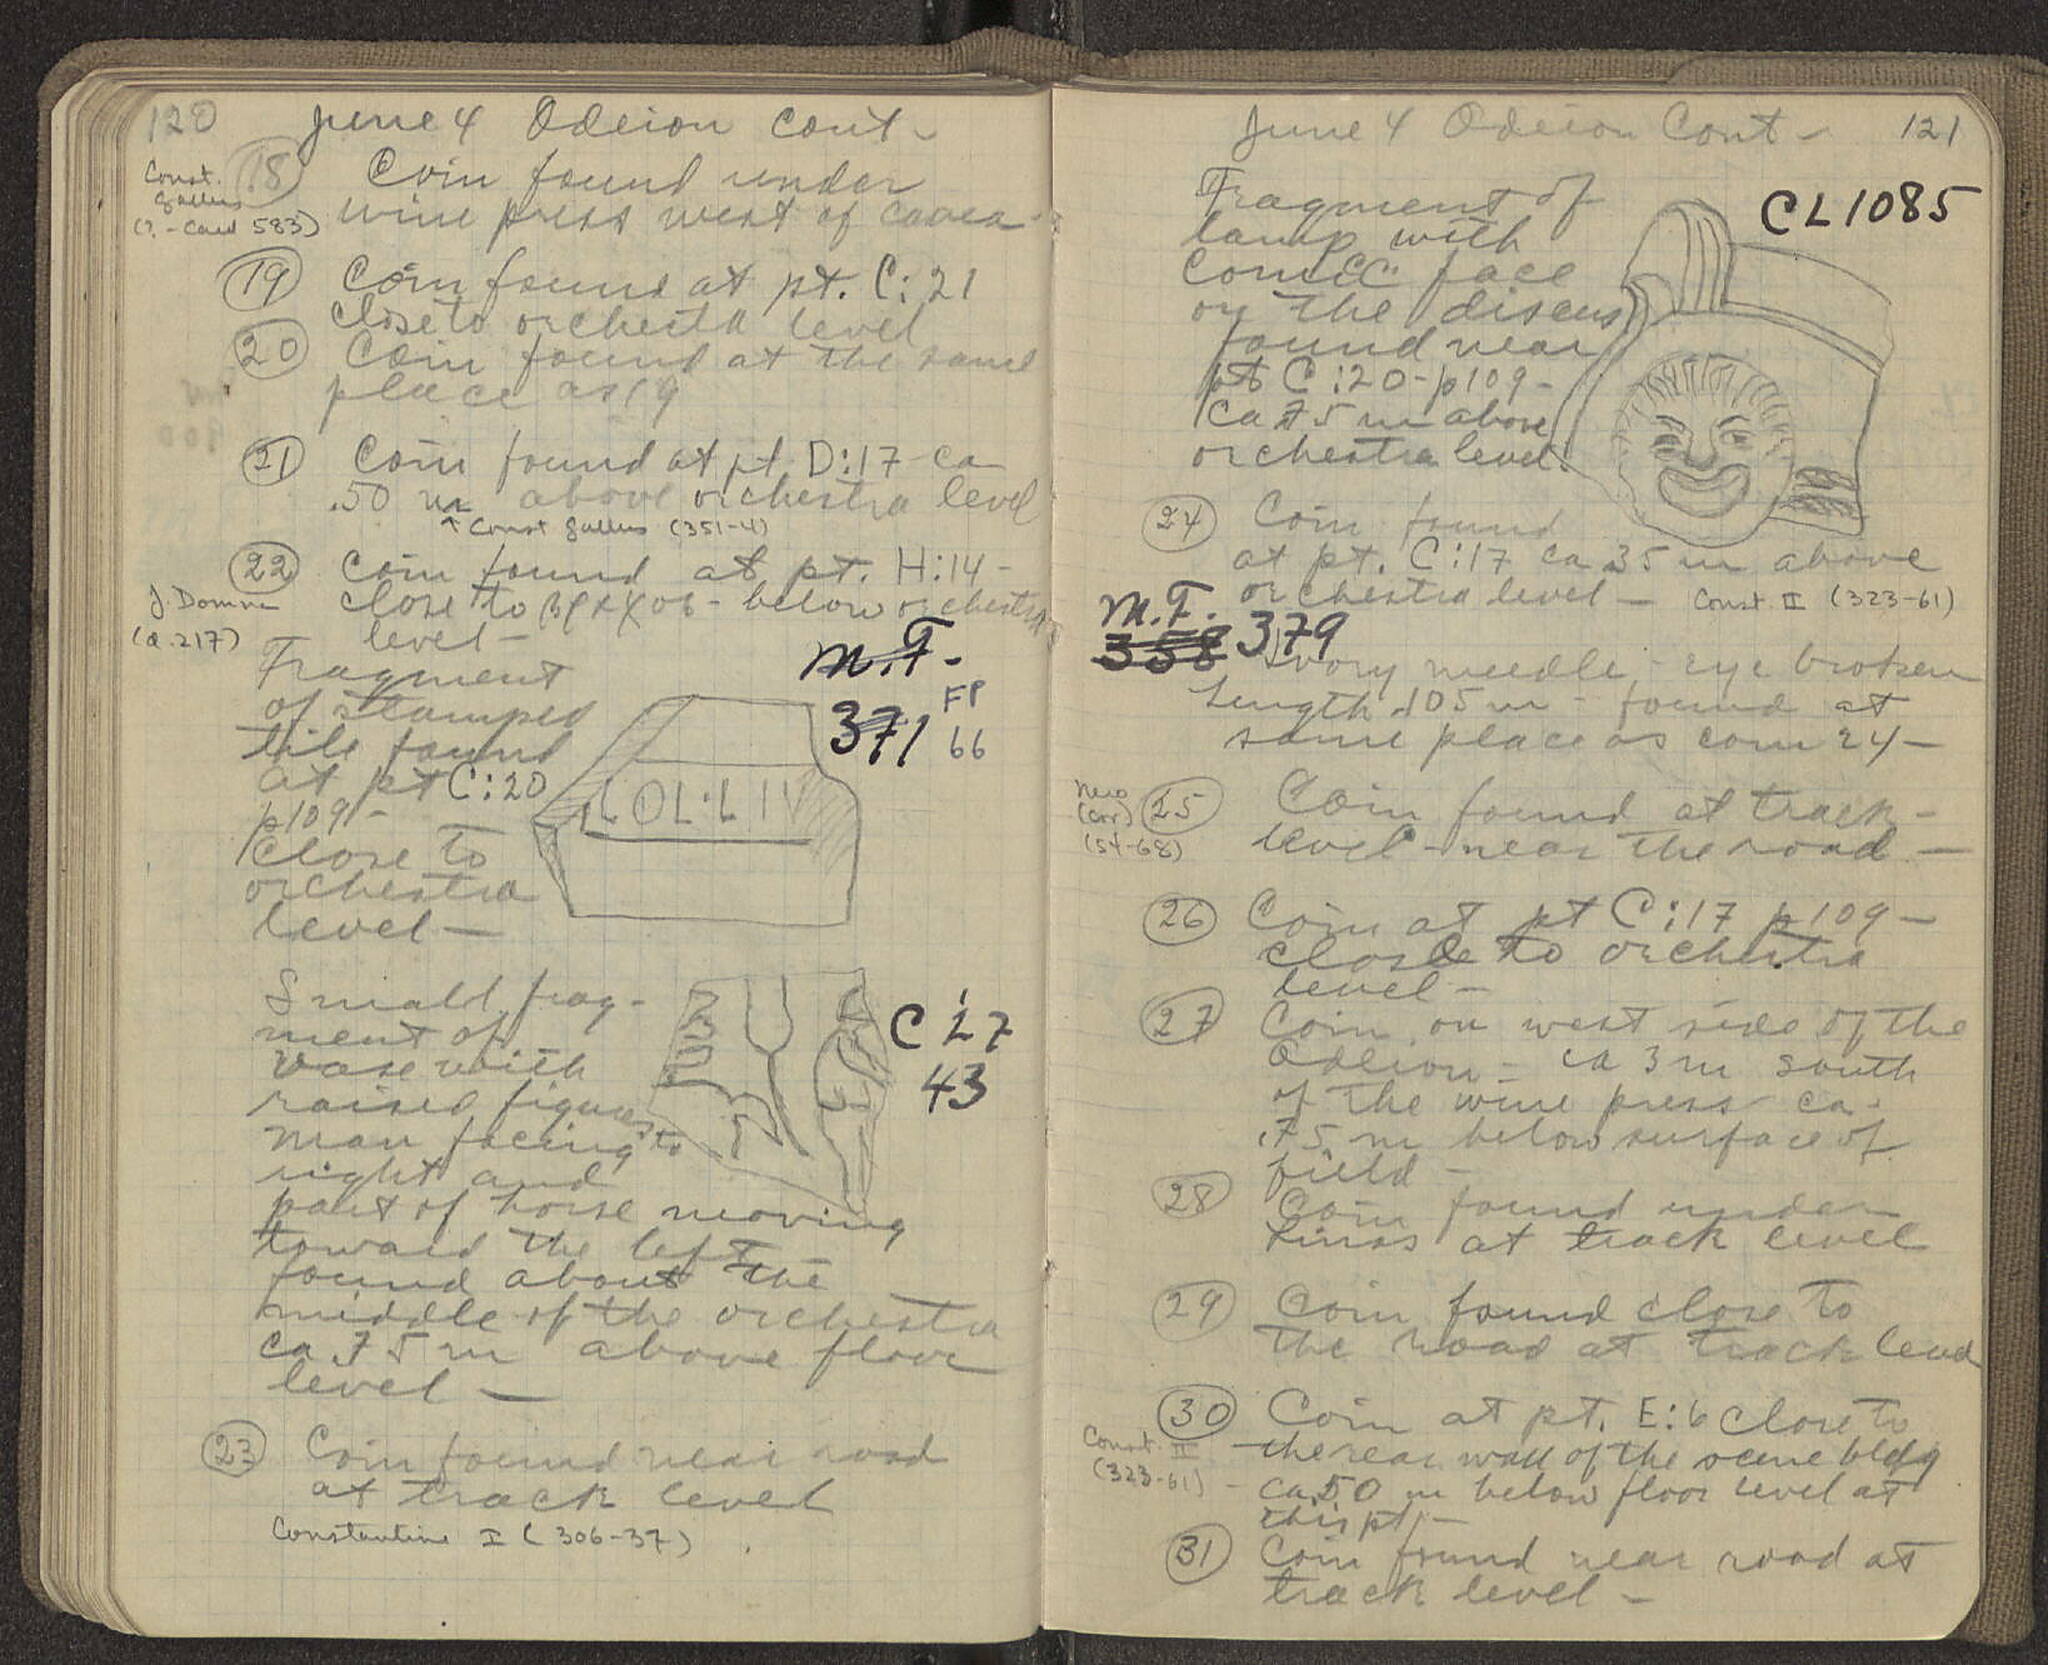 120
June 4 Odeion cont -
Const.
gallus
(? - Card 583)
18
Coin found under
wine press west of cavea -
19
Coin found at pt. C:21
close to orchestra level
20
Coin found at the same
place as 19
21
Coin found at pt D:17 ca
.50 m above orchestra level
↑ Const gallus (351-4)
22
Coin found at pt. H:14 -
close to - below orchestra
level -
J. Domna
(d. 217)
Fragment
of stamped
tile found
at pt C:20
p109 -
close to
orchestra
level -
M.F.
371
FP
66
LOL·LIV
Small frag-
ment of
vase with
raised figures
man facing to
right and
part of horse moving
toward the left
found about the
middle of the orchestra
ca .75 m above floor
level -
C L 7
43
23
Coin found near road
at track level
Constantine I (306-37)
June 4 Odeion Cont -
121
CL1085
Fragment of
lamp with
comic face
on the discus
found near
pt C:20 - p109 -
ca .75 m above
orchestra level.
24
Coin found
at pt. C:17 ca .35 m above
orchestra level - Const II (323-61)
M.F.
358 379
Ivory needle - eye broken
Length .105 m - found at
same place as coin 24 -
Nero
(Cor)
(54-68)
25
Coin found at track -
level - near the road -
26
Coin at pt C:17 p109 -
close to orchestra
level -
27
Coin on west side of the
Odeion - ca 3 m south
of the wine press ca.
.75 m below surface of
field -
28
Coin found under
at track level
29
Coin found close to
the road at track level
30
Coin at pt. E:6 close to
the rear wall of the scene bldg
- ca .50 m below floor level at
this pt. -
Const. II
(323-61)
31
Coin found near road at
track level -